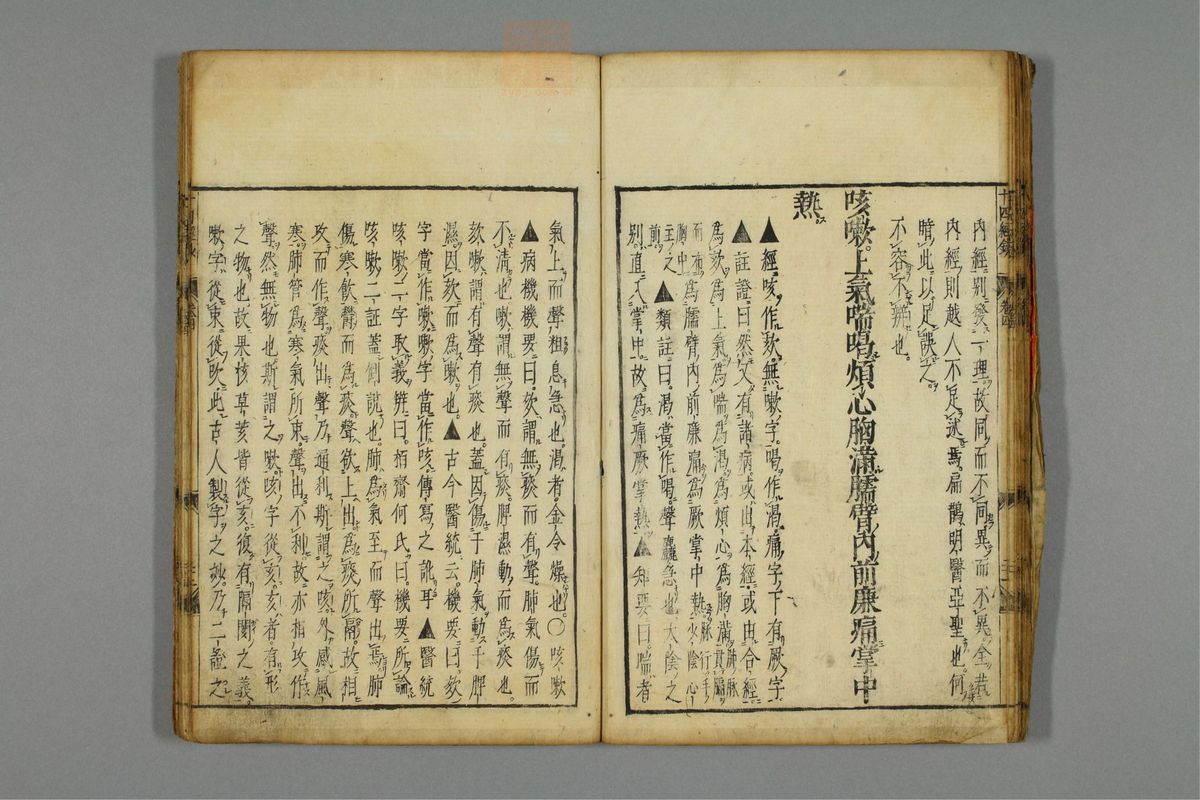 内經別發一理故同而不同異而不異全若
内經則越人不足述焉扁鵲明醫亞聖也何
瞕此以足誤之
不容不辨也
咳嗽上氣喘喝煩心胸滿臑臂内前廉痛掌中
熱
▲經咳作欬無嗽字喝作渴痛字下有厥字
▲註證曰然又有諸病或出本經或由合經
為欬為上氣為喘為渴為煩心為胸滿肺脈貫膈
而布胸中為臑臂内前廉痛為厥掌中熱脈行手少陰心
主之前▲類註曰渴當作喝聲麤急也太陰之
別直入掌中故為痛厥掌熱▲知要曰喘者
氣上而聲粗息急也渴者金令燥也〇咳嗽
▲病機機要曰欬謂無痰而有聲肺氣傷而
不清也嗽謂無聲而有痰脾濕動而為痰也
欬嗽謂有聲有痰也蓋因傷于肺氣動于脾
濕因欬而為嗽也▲古今醫統云機要曰欬
字當作嗽嗽字當作咳傳寫之訛耳▲醫統
咳嗽二字取義辨曰栢齋何氏曰機要所論
咳嗽二証蓋創說也肺為氣至而聲出焉肺
傷寒飲鬱而為痰聲欲上出為痰所隔故相
攻而作聲痰出聲乃通利斯謂之咳外感風
寒肺管為寒氣所束聲出不利故亦相攻作
聲然無物也斯謂之嗽咳字從亥亥者有形
之物也故果核草荄皆從亥復有隔閡之義
嗽字從束從吹此古人製字之妙乃二證之